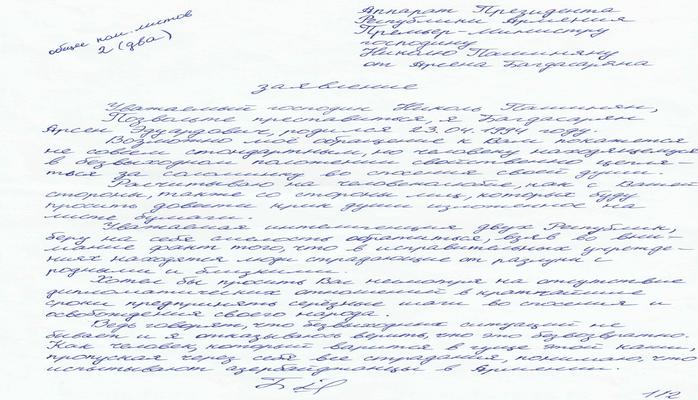 общее кол. листов
2 (два)
Аппарат Президента
Республики Армения
Премьер-Министру
господину
Николю Пашиняну
от Арсена Багдасаряна
заявление
Уважаемый господин Николь Пашинян,
Позвольте преставиться, я Багдасарян
Арсен Эдуардович, родился 23.04.1994 году.
Возможно моё обращение к Вам покажится
не совсем стандартным, но человеку находящемуся
в безвыходном положении свойственно цепля-
ться за соломинку во спосения своей души.
Расчитываю на человеколюбие, как с Вашей
стороны, также со стороны лиц, которых буду
просить довести крик души изложенное на
листе бумаги.
Уважаемая интелигенция двух Республик,
беру на себя смелость обратиться, взяв во вни-
мание факт того, что в исправительных учрежде-
ниях находятся люди страдающие от разлуки с
родными и близкими.
Хотел бы просить Вас несмотря на отсутствие
дипломатических отношений в кратчайшие
сроки предпринять серьёзные шаги во спосения и
освобождения своего народа.
Ведь говорят, что безвыходных ситуаций не
бывает и я отказываюсь верить, что это безвозвратно.
Как человек, который варится в гуще этой каши,
пропуская через себя все страдания, понимаю, что
испытывают азербайджанцы в Армении.
1/2